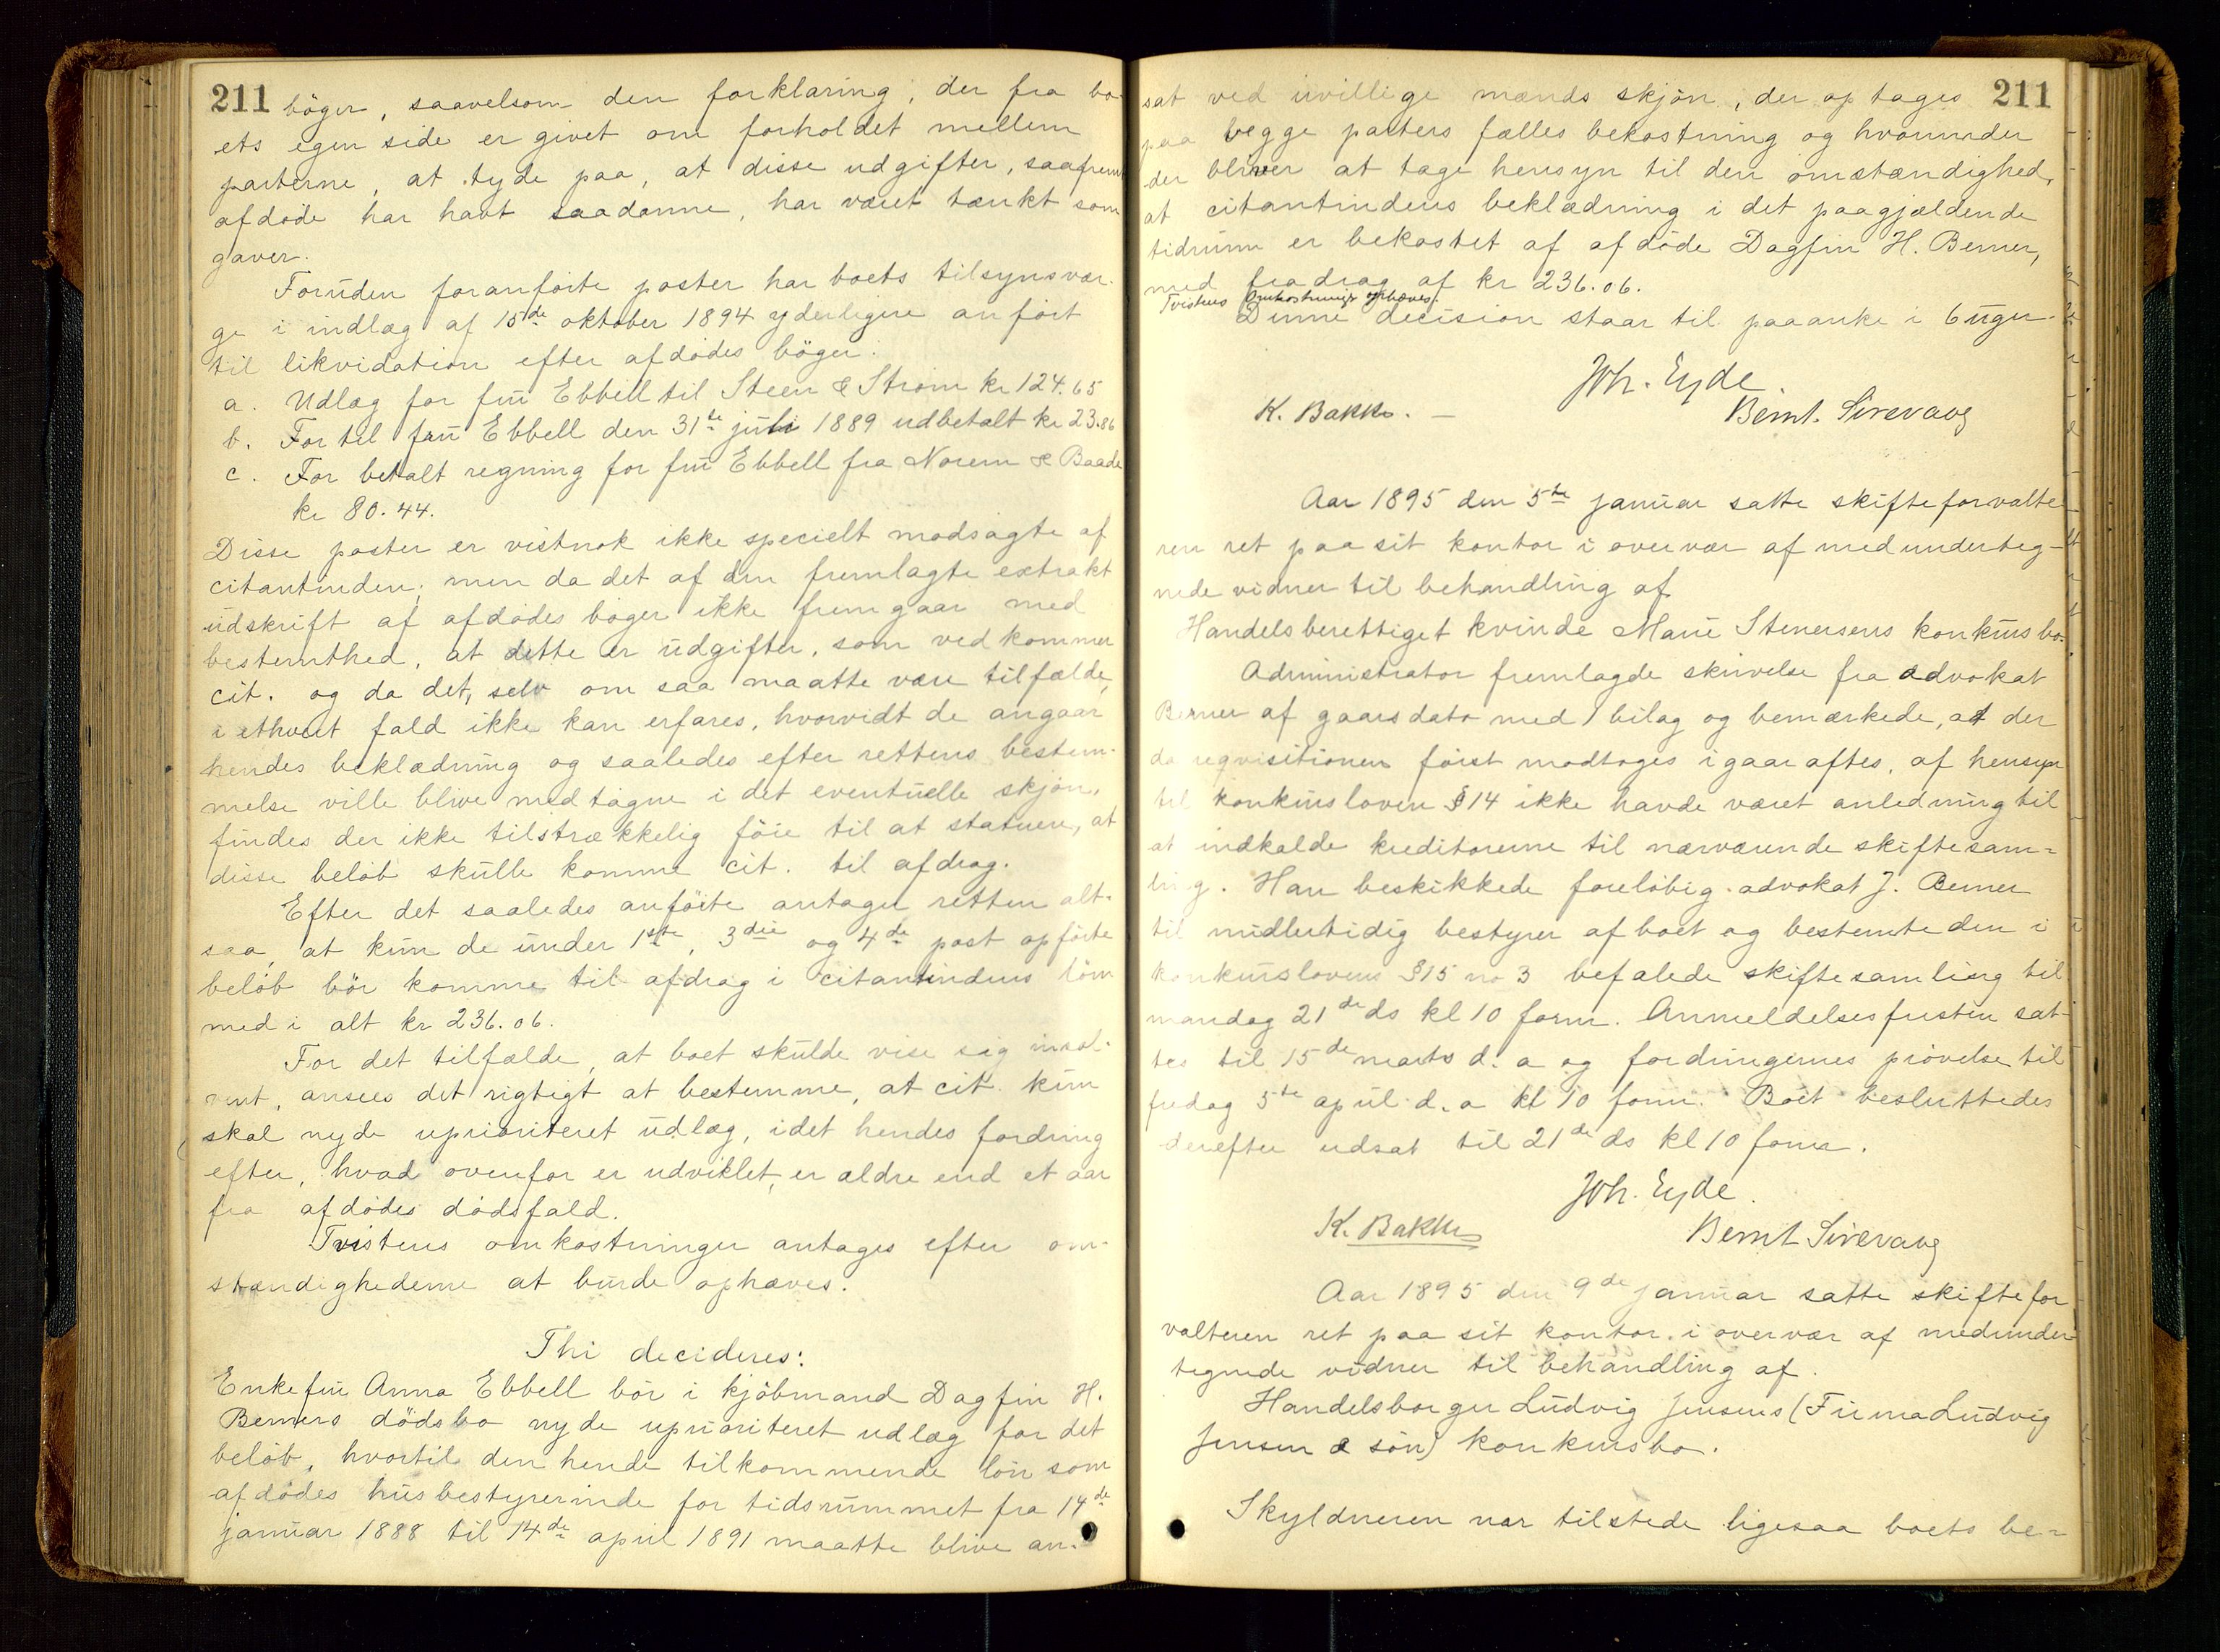 211
böger, saavelsom den forklaring, der fra bo-
ets egen side er givet om forholdet mellem
parterne, at tyde paa, at disse udgifter, saafremt
afdøde har havt saadanne, har været tænkt som
gaver.
Foruden foranførte poster har boets tilsynsvær-
ge i indlæg af 15de oktober 1894 yderligere anført
til likvidation efter afdødes bøger:
a. Udlæg for fru Ebbell til Steen & Strøm kr 124.65
b. For til fru Ebbell den 31te juli 1889 udbetalt kr 23.86
c. For betalt regning for fru Ebbell fra Norem & Baade
kr 80.44.
Disse poster er vistnok ikke specielt modsagte af
citantinden; men da det af den fremlagte extrakt
udskrift af afdødes bøger ikke fremgaar med
bestemthed, at dette er udgifter, som vedkommer
cit. og da det, selv om saa maatte være tilfælde,
i ethvert fald ikke kan erfares, hvorvidt de angaar
hendes beklædning og saaledes efter rettens bestem-
melse ville blive medtagne i det eventuelle skjøn,
findes der ikke tilstrækkelig føie til at statuere, at
disse beløb skulle komme cit. til afdrag.
Efter det saaledes anførte antager retten alt-
saa, at kun de under 1ste, 3die og 4de post opførte
beløb bör komme til afdrag i citantindens løn
med i alt kr 236.06.
For det tilfælde, at boet skulde vise sig insol-
vent, ansees det rigtigt at bestemme, at cit. kun
skal nyde uprioriteret udlæg, idet hendes fordring
efter, hvad ovenfor er udviklet, er ældre end et aar
fra afdødes dødsfald.
Tvistens omkostninger antages efter om-
stændighederne at burde ophæves.
Thi decideres:
Enkefru Anna Ebbell bör i kjöbmand Dagfin H.
Berners dödsbo nyde uprioriteret udlæg for det
beløb, hvortil den hende tilkommende løn som
afdødes husbestyrerinde for tidsrummet fra 14de
januar 1888 til 14de april 1891 maatte blive an-
211
sat ved uvillige mænds skjön, der optages
paa begge parters fælles bekostning og hvorunder
der bliver at tage hensyn til den omstændighed,
at citantindens beklædning i det paagjældende
tidsrum er bekostet af afdöde Dagfin H. Berner,
med fradrag af kr 236.06.
Tvistens Omkostninger ophæves.
Denne decision staar til paaanke i 6 uger.
Joh. Eyde.
K. Bakke. —
Bernt Sirevaag
Aar 1895 den 5te januar satte skifteforvalte
ren ret paa sit kontor i overvær af medunderteg-
nede vidner til behandling af
Handelsberettiget kvinde Marie Stenersens konkursbo.
Administrator fremlagde skrivelse fra advokat
Berner af gaarsdato med 1 bilag og bemærkede, at der
da reqvisitionen først modtoges igaaraftes, af hensyn
til konkursloven § 14 ikke havde været anledning til
at indkalde kreditorerne til nærværende skiftesam-
ling. Han beskikkede foreløbig advokat J. Berner
til midlertidig bestyrer af boet og bestemte den i
konkurslovens § 15 no 3 befalede skiftesamling til
mandag 21de ds kl 10 form. Anmeldelsesfristen sat-
tes til 15de marts d. a og fordringernes prøvelse til
fredag 5te april d. a kl 10 form. Boet besluttedes
derefter udsat til 21de ds kl 10 form.
Joh. Eyde.
K. Bakke
Bernt Sirevaag
Aar 1895 den 9de januar satte skiftefor
valteren ret paa sit kontor i overvær af medunder-
tegnede vidner til behandling af
Handelsborger Ludvig Jensens (Firma Ludvig
Jensen & sön) konkursbo.
Skyldneren var tilstede ligesaa boets be-